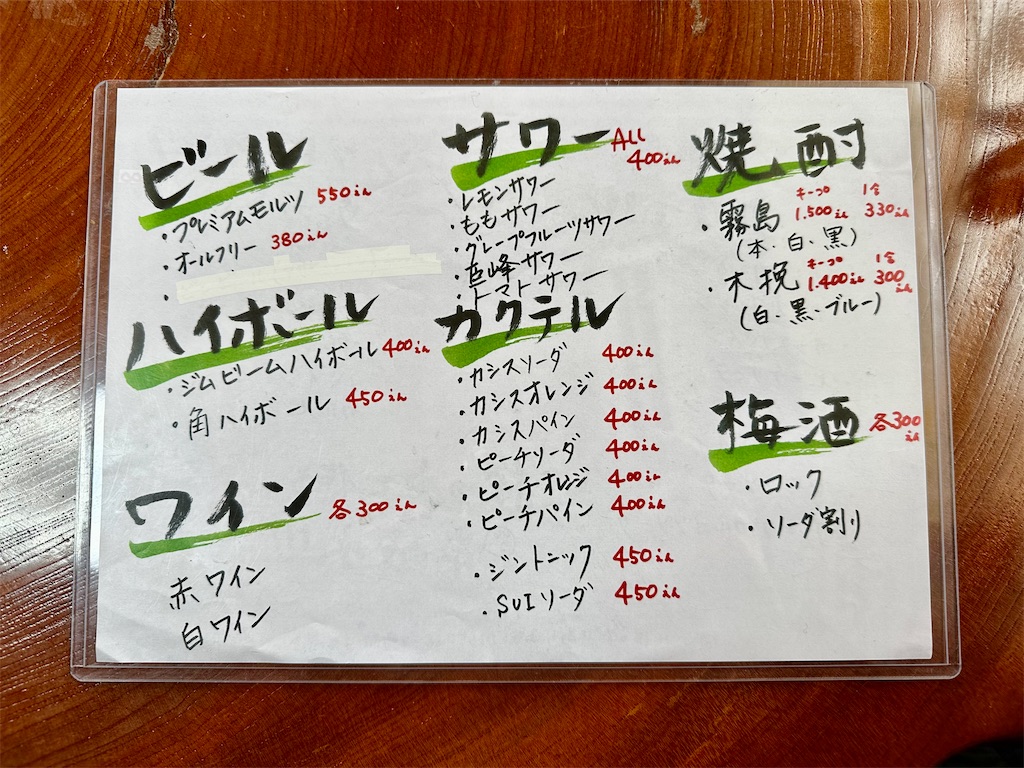 ビール
・プレミアムモルツ 550えん
・オールフリー 380えん
・
ハイボール
・ジムビームハイボール 400えん
・角ハイボール 450えん
ワイン 各300えん
赤ワイン
白ワイン
サワー ALL 400えん
・レモンサワー
・ももサワー
・グレープフルーツサワー
・巨峰サワー
・トマトサワー
カクテル
・カシスソーダ 400えん
・カシスオレンジ 400えん
・カシスパイン 400えん
・ピーチソーダ 400えん
・ピーチオレンジ 400えん
・ピーチパイン 400えん
・ジントニック 450えん
・SUIソーダ 450えん
焼酎
キープ 1合
・霧島 1.500えん 330えん
(本・白・黒)
キープ 1合
・木挽 1.400えん 300えん
(白・黒・ブルー)
梅酒 各300えん
・ロック
・ソーダ割り